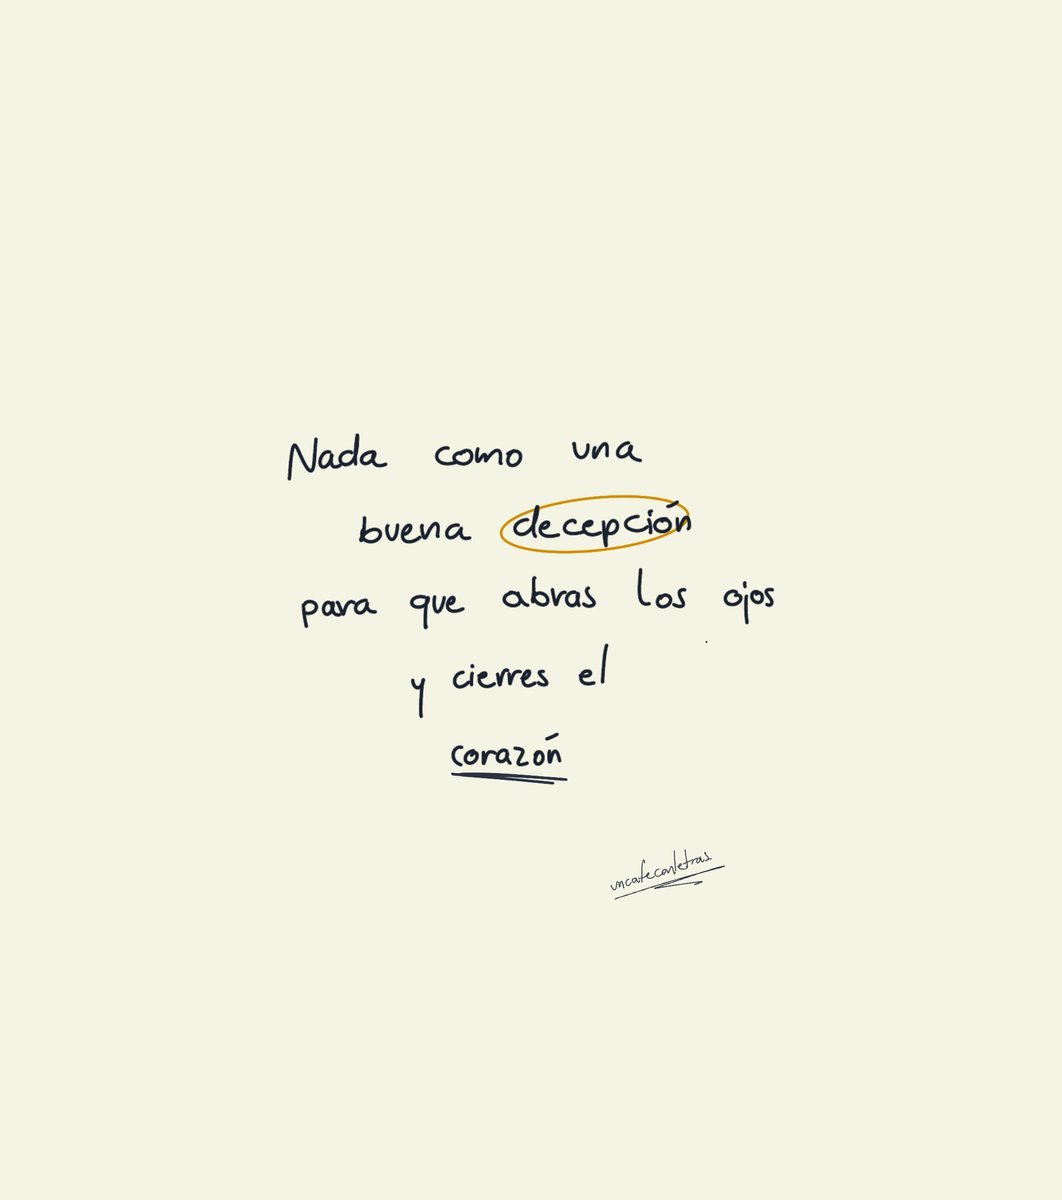 Nada como una
buena decepción
para que abras los ojos
y cierres el
corazón
uncafeconletras